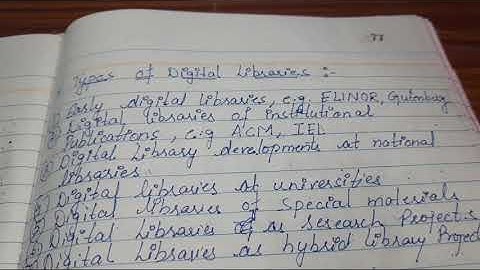 77
Types of Digital Libraries :-
1) Early digital libraries, e.g. ELINOR, Gutmbag
2) Digital libraries of institutional
Publications, e.g ACM, IEL
3) Digital Library developments at national
libraries.
4) Digital libraries at universities
5) Digital libraries of special materials
6) Digital Libraries as research Projects
Digital Libraries as hybrid library Project